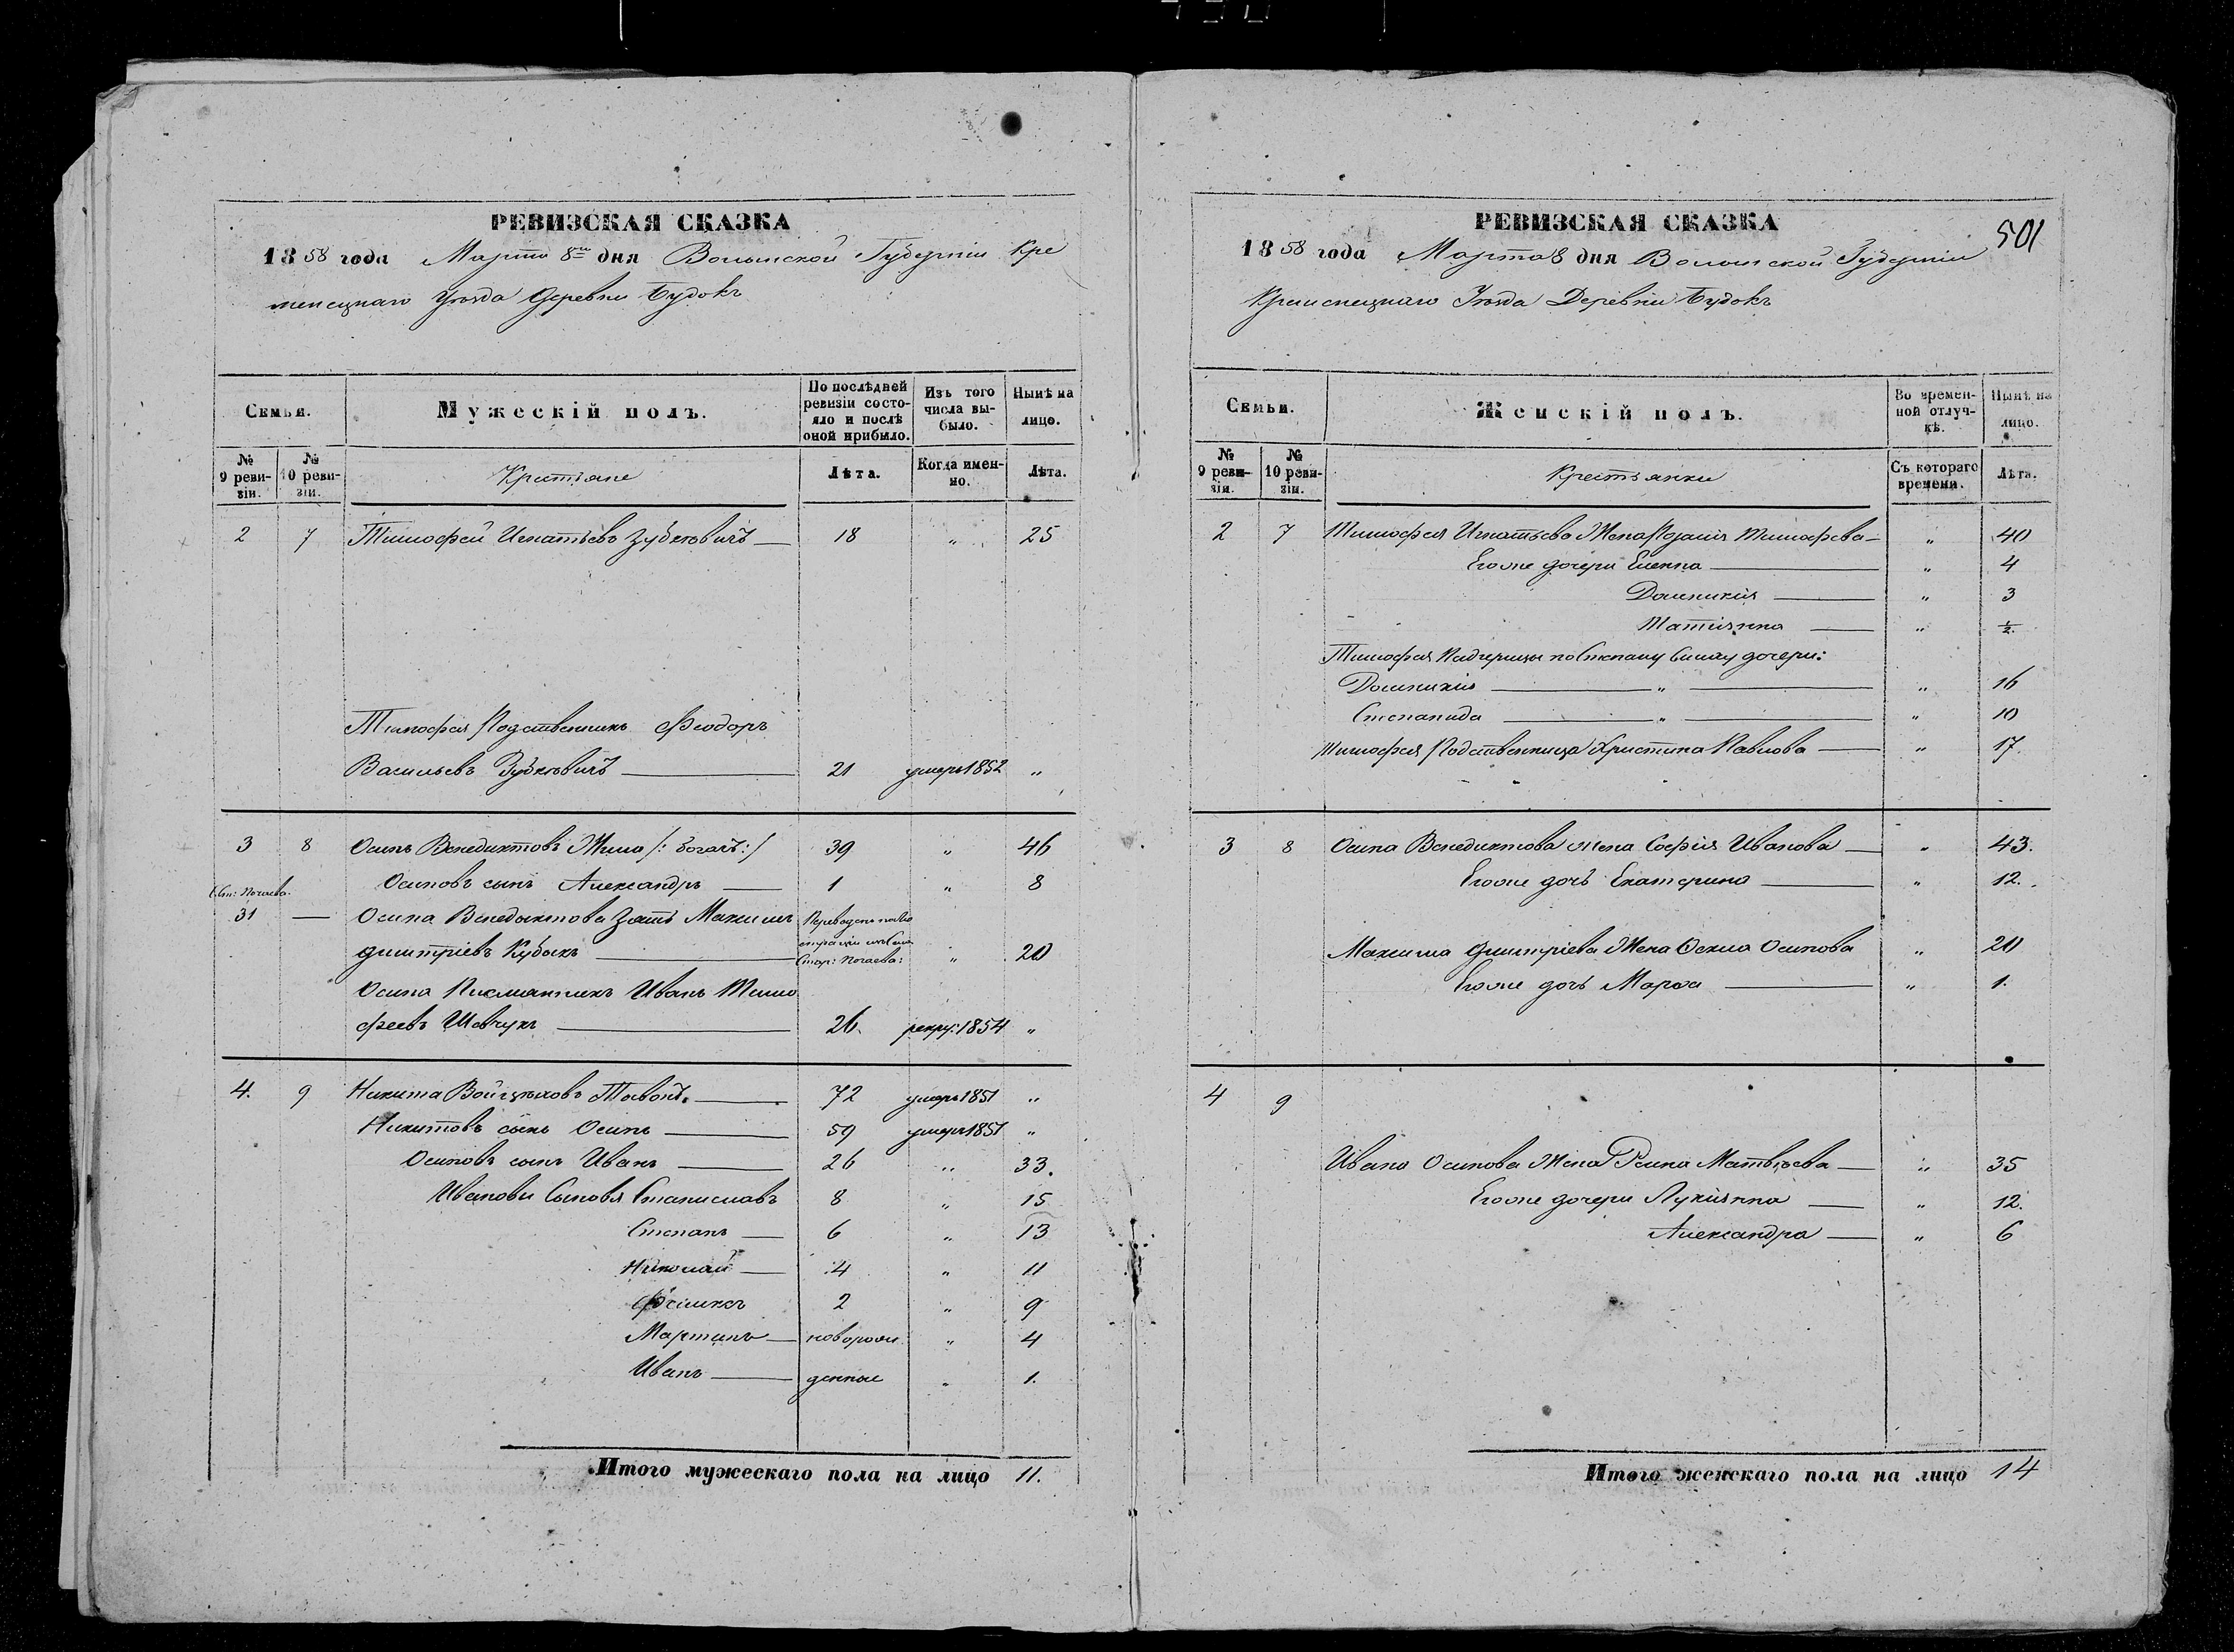 РЕВИЗСКАЯ СКАЗКА
1858 года Марта 8го дня Волынской Губерніи Кре
менецкаго Уѣзда Деревни Будокъ
Семьи.
Мужескій полъ.
По послѣдней ревизіи состояло и послѣ оной прибыло.
Изъ того числа выбыло.
Нынѣ на лицо.
№ 9 ревизіи.
№ 10 ревизіи.
Крестьяне
Лѣта.
Когда именно.
Лѣта.
2 7 Тимофей Игнатьевъ Зубковичъ — 18 " 25
Тимофея Родственникъ Феодоръ
Васильевъ Зубковичъ — 21 умеръ 1852 "
3 8 Осипъ Венедиктовъ Жила /: богачъ :/ 39 " 46
Осиповъ сынъ Александръ — 1 " 8
Почаева.
31 — Осипа Венедыктова Зять Максимъ Переведенъ
Дмитріевъ Кубыкъ — Стар: Почаева: " 20
Осипа Писмянникъ Иванъ Тимо
феевъ Шевчукъ — 26. рекру: 1854 "
4. 9 Никита Войцѣховъ — 72 умеръ 1851 "
Никитовъ сынъ Осипъ — 59 умеръ 1851 "
Осиповъ сынъ Иванъ — 26 " 33.
Ивановы Сыновья Станиславъ 8 " 15
Степанъ — 6 " 13
Николай — 4 " 11
2 " 9
Мартинъ — новорож " 4
Иванъ — денные " 1.
Итого мужескаго пола на лицо 11.
РЕВИЗСКАЯ СКАЗКА 501
1858 года Марта 8 дня Волынской Губерніи
Кременецкаго Уѣзда Деревни Будокъ
Семьи.
Женскій полъ.
Во временной отлучкѣ.
Нынѣ на лицо.
№ 9 ревизіи.
№ 10 ревизіи.
Крестьянки
Съ котораго времени.
Лѣта.
2 7 Тимофея Игнатьева Жена Розалія Тимофѣева — " 40
Его же дочери Еленна — " 4
Доминикія — " 3
Татіянна — " ½.
Тимофея Падчерицы по Степану дочери:
Доминикія — " — " 16
Степанида — " — " 10
Тимофея Родственница Христина Павлова — " 17.
3 8 Осипа Венедиктова жена Софія Иванова — " 43.
Его же дочь Екатерина — " 12.
Максима Дмитріева Жена Осипова " 20
Его же дочь Марѳа — " 1.
4 9
Ивана Осипова Жена Матвѣева — " 35
Его же дочери Лукіянна — " 12.
Александра — " 6
Итого женскаго пола на лицо 14